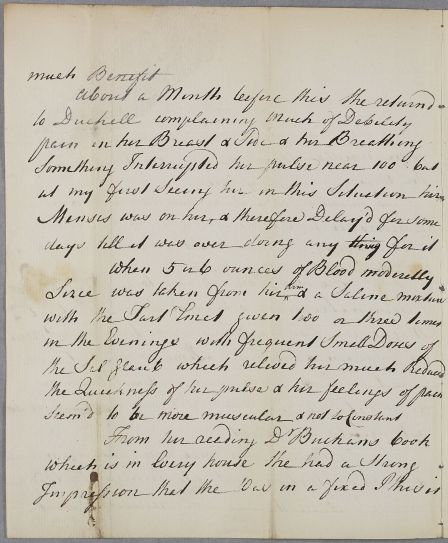 much Benefit
About a Month before this She returnd
to Duchell complaining much of Debility
pain in her Breast & Side & her Breathing
Something Interrupted her pulse near 100 but
at my first Seeing her in this Situation her
Menses was on her, & therefore Delay'd for some
days till it was over doing any thing for it
When 5 or 6 ounces of Blood moderetly
Sizie was taken from hir arm & a Saline mixture
with the Tart Emet given two or three times
in the Evenings with frequent Small Doses of
the Sal glaub which relived her much Reduced
the Quickness of her pulse & her feelings of pain
Seem'd to be more muscular & not so Constant
From her reading Dr Buchans book
which is in Every house She had a Strong
Impression that She was in a fixed Pthisis